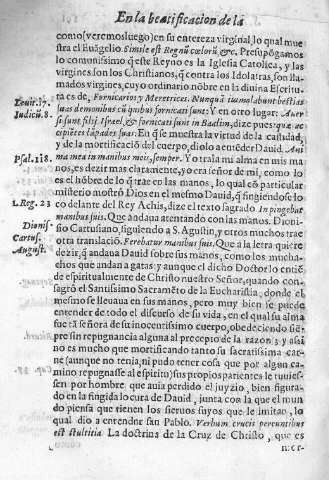 En la beatificacion de la
como (veremos luego) en su entereza virginal, lo qual mue
stra el Euãgelio. Simile est Regnũ cœlorũ, &c. Presupõgamos
lo comunissimo q̃ este Reyno es la Iglesia Catolica, y las
virgines son los Christianos, q̃ contra los Idolatras, son lla
mados virgines, cuyo ordinario nõbre en la diuina Escritu-
Leuit. 17. ra es de, Fornicarios y Meretrices. Nunquã immolabunt bestias
Iudicũ. 8. suas demonibus cũ quibus fornicati sunt: Y en otro lugar:
si sunt filij Israel, & fornicati sunt in Baalim, dize pues: que ac
En q̃ se muestra la virtud de la castidad,
y de la mortificaciõ del cuerpo, diolo a entẽder Dauid. Ani
Psal. 118. ma mea in manibus meis, semper. Yo traía mi alma en mis ma
nos, es dezir mas claramente, yo era señor de mi, como lo
es el hõbre de lo q̃ trae en las manos, lo qual cõ particular
misterio mostrò Dios en el mesmo Dauid, q̃ fingiendose lo
1. Reg. 23 co delante del Rey Achis, dize el texto sagrado
manibus suis. Que andaua atentando con las manos. Dioni-
Dionis. sio Cartusiano, siguiendo a S. Agustin, y otros muchos trae
Cartus. otra translaciõ. Ferebatur manibus suis. Que a la letra quiere
August. dezir, q̃ andaua Dauid sobre sus manos, como los mucha-
chos que andan a gatas: y aunque el dicho Doctor lo entiẽ
de espiritualmente de Christo nuestro Señor, quando con-
sagrò el Santissimo Sacramẽto de la Eucharistia, donde el
mesmo se lleuaua en sus manos, pero muy bien se puede
entender de todo el discurso de su vida, en el qual su alma
fue tã señora de su inocentissimo cuerpo, obedeciendo siẽ-
pre sin repugnancia alguna al precepto de la razon; y assi
no es mucho que mortificando tanto su sacratissima car-
ne (aunque no tenia, ni pudo tener cosa que por algun ca-
mino repugnasse al espiritu) sus propios parientes le tuuies-
sen por hombre que auia perdido el juyzio, bien figura-
do en la fingida locura de Dauid, junta con la que el mun
do piensa que tienen los sieruos suyos que le imitan, lo
qual dio a entender san Pablo. Verbum crucis pereuntibus
est stultitia. La doctrina de la Cruz de Christo, que es